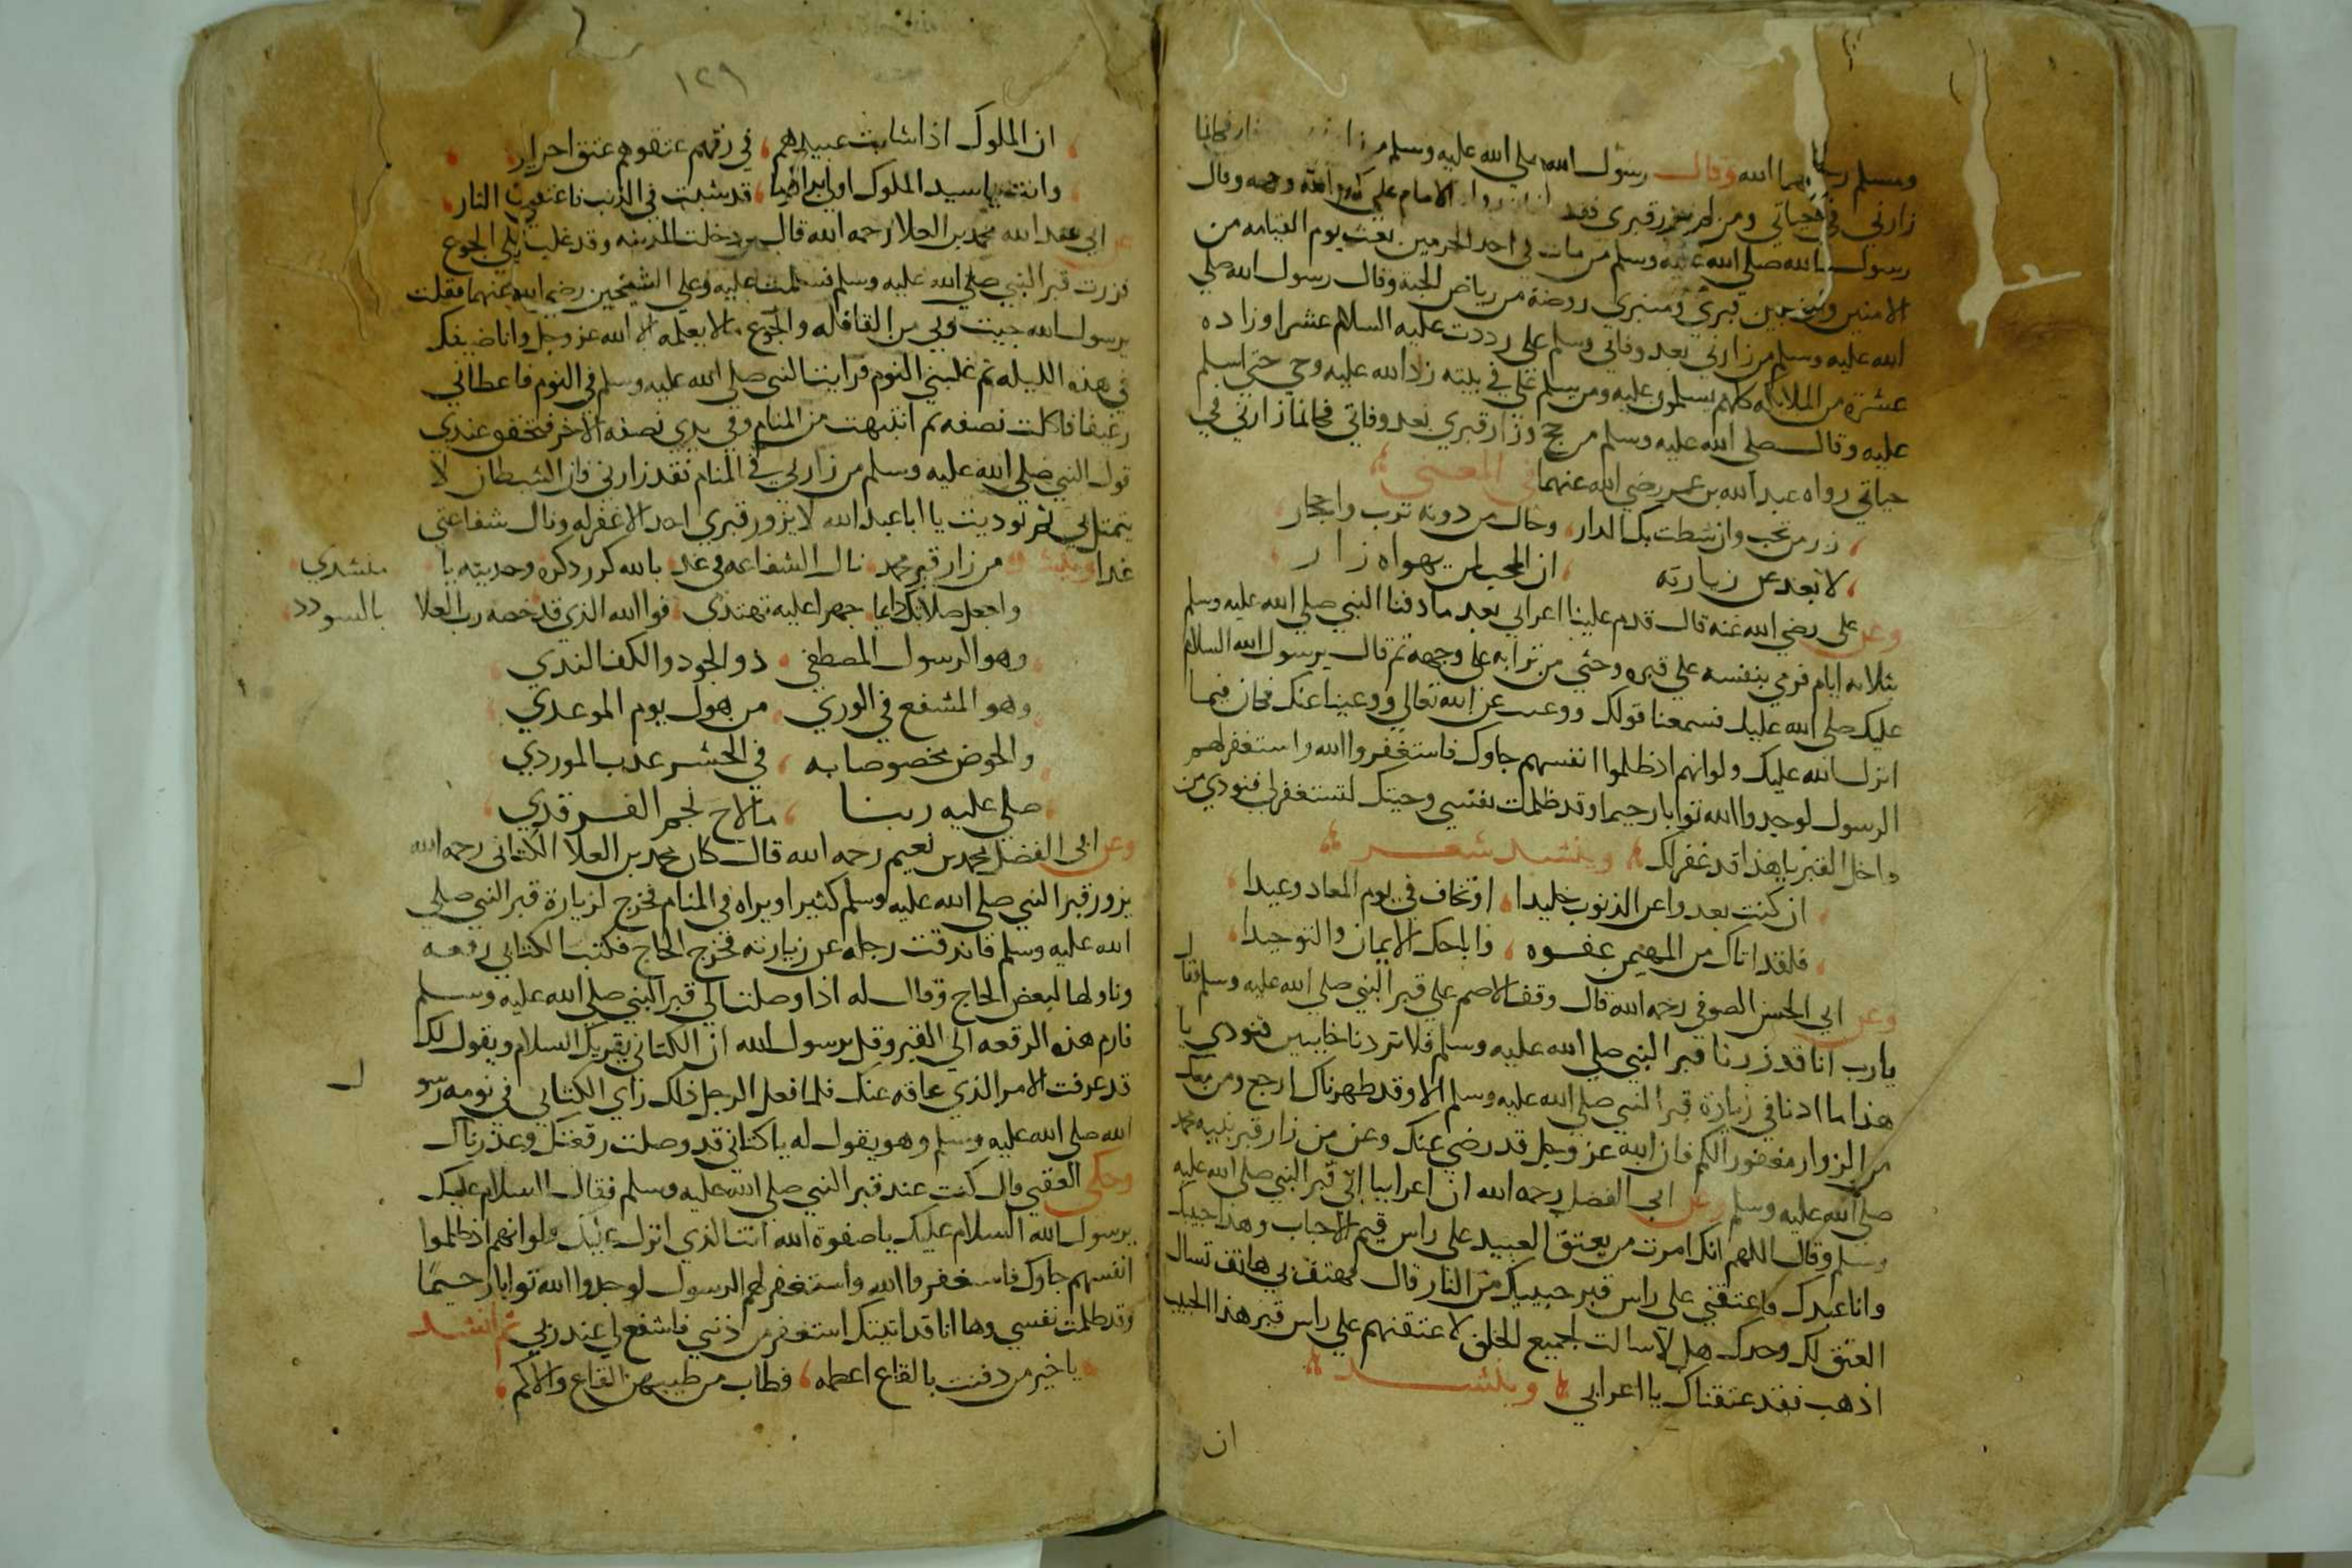 ومسلم رحمهما الله وقال رسول الله صلى الله عليه وسلم من زار فكانما
زارني في حياتي ومن لم يزر قبري فقد الامام علي كرم الله وجهه وقال
رسول الله صلى الله عليه وسلم من مات في احد الحرمين بعث يوم القيامه من
الامنين ومن بين قبري ومنبري روضة من رياض الجنة وقال رسول الله صلي
الله عليه وسلم من زارني بعد وفاتي وسلم علي رددت عليه السلام عشرا وزاده
عشرة من الملائكه كلهم يسلمون عليه ومن سلم علي في بيته رد الله عليه روحي حتي اسلم
عليه وقال صلى الله عليه وسلم من حج وزار قبري بعد وفاتي فكانما زارني في
حياتي رواه عبد الله بن عمر رضي الله عنهما في المعني
زر من تحب وان شطت بك الدار وحال من دونه ترب واحجار
لا بعد عن زيارته ان المحب لمن يهواه زار
وعن علي رضي الله عنه قال قدم علينا اعرابي بعد ما دفنا النبي صلي الله عليه وسلم
بثلاثه ايام فرمي بنفسه علي قبره وحثي من ترابه علي وجهه ثم قال يرسول الله السلام
عليك صلى الله عليك فسمعنا قولك ووعيت عن الله تعالي ووعينا عنك فكان فيما
انزل الله عليك ولو انهم اذ ظلموا انفسهم جاوك فاستغفروا الله واستغفر لهم
الرسول لوجدوا الله توابا رحيما وقد ظلمت نفسي وجيتك لتستغفر لي فنودي من
داخل القبر يا هذا قد غفر لك وينشد شعر
ان كنت بعد واعن الذنوب خليدا اوتخاف في يوم المعاد وعيدا
فلقد اتاك من المهيمن عفوه واباحك الايمان والتوحيدا
وعن ابي الحسن الصوفي رحمه الله قال وقف الاصم علي قبر النبي صلي الله عليه وسلم فقال
يارب انا قد زرنا قبر النبي صلي الله عليه وسلم فلا تردنا خايبين فنودي يا
هذا ما اذنا في زيارة قبر النبي صلي الله عليه وسلم الا وقد طهرناك ارجع ومن معك
من الزوار مغفورا لكم فان الله عز وجل قد رضي عنك وعن من زار قبر نبيه محمد
صلي الله عليه وسلم وعن ابي الفضل رحمه الله ان اعرابيا اتى قبر النبي صلي الله عليه
وسلم وقال اللهم انك امرت من يعتق العبيد على راس قبر الاحباب وهذا حبيبك
وانا عبدك فاعتقني على راس قبر حبيبك من النار قال فهتف بي هاتف تسال
العتق لك وحدك هل لا سالت لجميع الخلق لاعتقنهم علي راس قبر هذا الحبيب
اذهب فقد عتقناك يا اعرابي وينشد
ان
١٢٩
ان الملوك اذا شابت عبيدهم في رقهم عتقوهم عتق احرار
وانت يا سيد الملوك اولي بذا كرما قد شبت في الذنب فاعتقني من النار
عن ابي عبد الله محمد بن العلا رحمه الله قال دخلت المدينه وقد غلب علي الجوع
فزرت قبر النبي صلي الله عليه وسلم فسلمت عليه وعلى الشيخين رضي الله عنهما فقلت
يرسول الله جيت وبي من الفاقه والجوع مالا يعلمه الا الله عز وجل وانا ضيفك
في هذه الليله ثم غلبني النوم فرايت النبي صلي الله عليه وسلم في النوم فاعطاني
رغيفا فاكلت نصفه ثم انتبهت من المنام وفي يدي نصفه الاخر فتحقق عندي
قول النبي صلي الله عليه وسلم من زارني في المنام فقد زارني فان الشيطان لا
يتمثل بي ثم نوديت يا ابا عبد الله لا يزور قبري احد الا غفر له ونال شفاعتي
غدا وينشد من زار قبر محمد نال الشفاعه في غد بالله كرر ذكره وحديثه يا منشدي
واجعل صلاتك دايما جهرا عليه تهتدي فوالله الذي قد خصه رب العلا بالسودد
وهو الرسول المصطفي ذو الجود والكف الندي
وهو المشفع في الوري من هول يوم الموعدي
والحوض مخصوصا به في الحشر عذب الموردي
صلي عليه ربنا ما لاح نجم الفرقدي
وعن ابي الفضل محمد بن نعيم رحمه الله قال كان محمد بن العلا الكتاني رحمه الله
يزور قبر النبي صلي الله عليه وسلم كثيرا ويراه في المنام فخرج لزيارة قبر النبي صلي
الله عليه وسلم فاندقت رجله عن زيارته فخرج الحاج فكتب الكتاني رقعه
وناولها لبعض الحاج وقال له اذا وصلت الي قبر النبي صلي الله عليه وسلم
فارم هذه الرقعه الي القبر وقل يرسول الله ان الكتاني يقريك السلام ويقول لك
قد عرفت الامر الذي عاقه عنك فلما فعل الرجل ذلك راي الكتاني في نومه رسول
الله صلي الله عليه وسلم وهو يقول له يا كتاني قد وصلت رقعتك وعذرناك
وحكي العتبي قال كنت عند قبر النبي صلي الله عليه وسلم فقال السلام عليك
يرسول الله السلام عليك يا صفوة الله انت الذي انزل عليك ولو انهم اذ ظلموا
انفسهم جاوك فاستغفروا الله واستغفر لهم الرسول لوجدوا الله توابا رحيما
وقد ظلمت نفسي وها انا قد اتيتك استغفر من ذنبي فاشفع لي عند ربي ثم انشد
يا خير من دفنت بالقاع اعظمه فطاب من طيبهن القاع والاكم